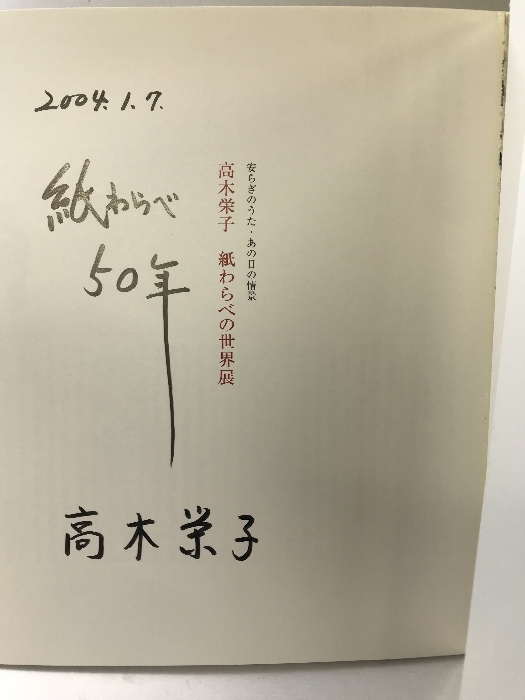 2004.1.7.
紙わらべ
50年
高木栄子
安らぎのうた・あの日の情景
高木栄子 紙わらべの世界展